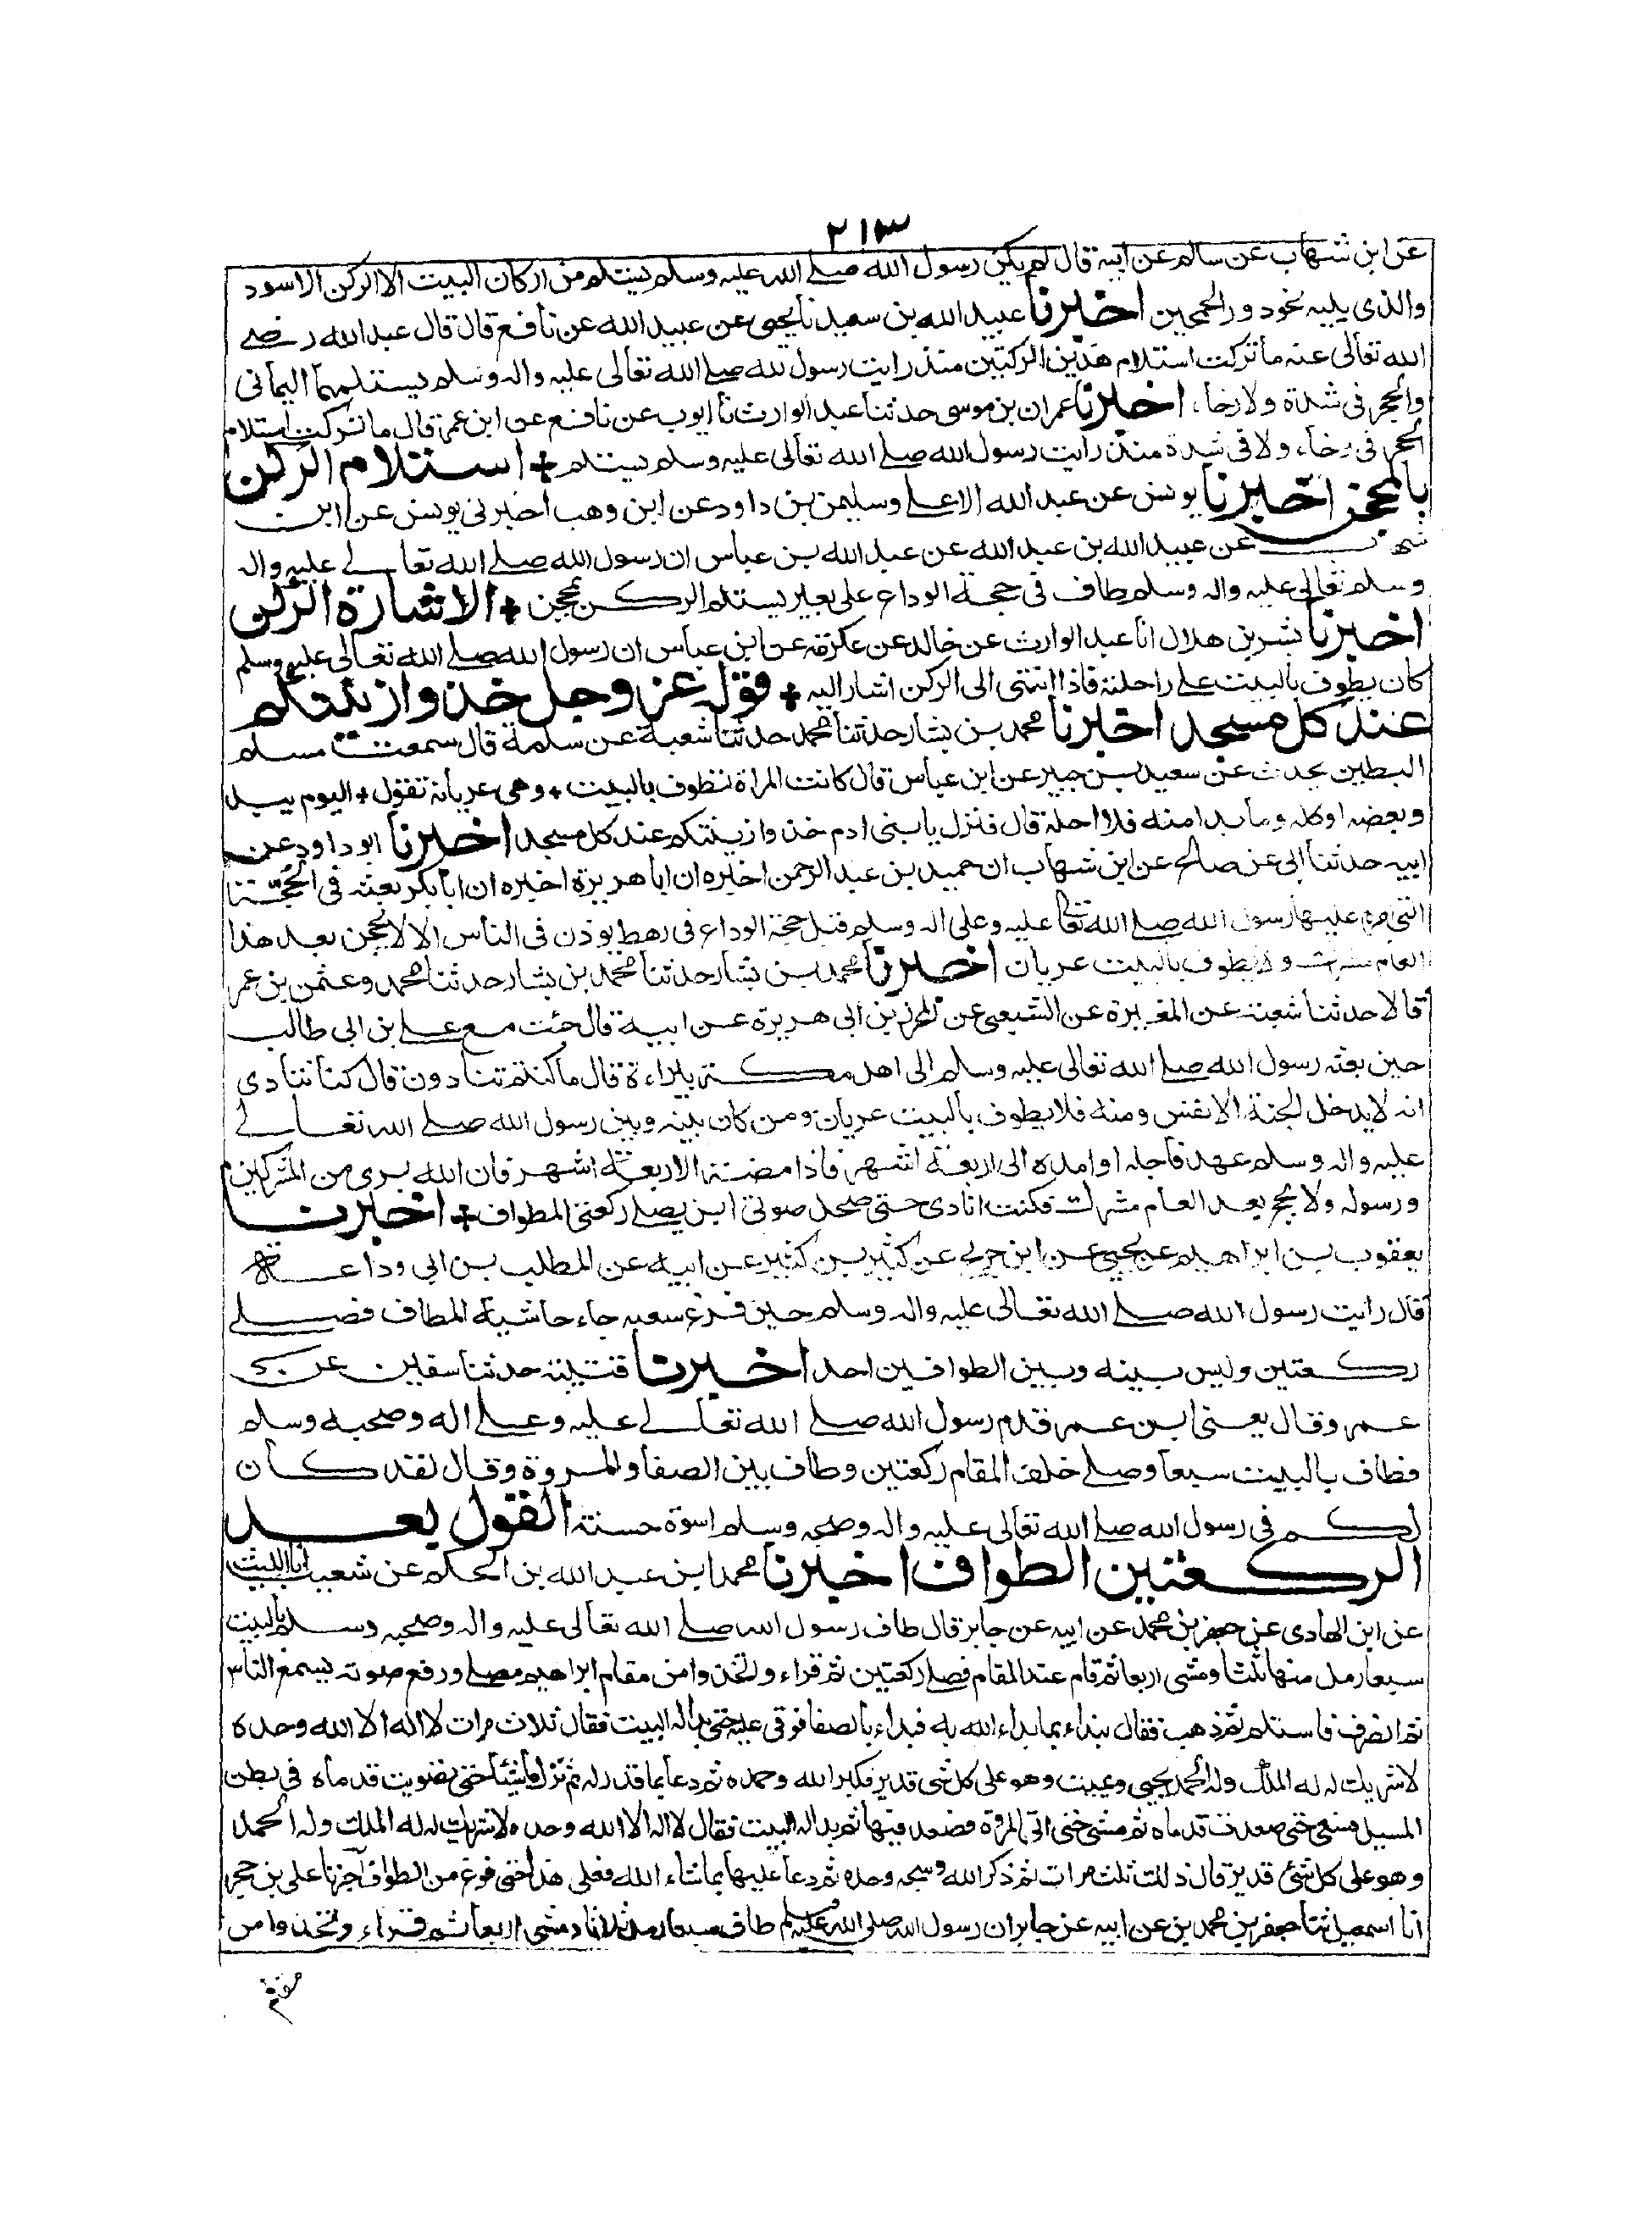 ٢١٣
عن ابن شهاب عن سالم عن ابيه قال لم يكن رسول الله صلے الله عليه وسلم يستلم من اركان البيت الا الركن الاسود
والذى يليه نخود ور الحمحين اخبرنا عبيد الله بن سعيد نا يحيى عن عبيد الله عن نافع قال قال عبد الله رضے
الله تعالى عنه ما تركت استلام هذين الركنين منذ رايت رسول لله صلے الله تعالى عليه واله وسلم يستلمهما اليمانى
والحجر فى شدة ولا رخاء، اخبرنا عمران بن موسى حدثنا عبد الوارث نا ايوب عن نافع عن ابن عمر قال ما تركت استلام
الحجر فى رخاء ولا فى شدة منذ رايت رسول الله صلے الله تعالى عليه وسلم يستلم + استلام الركن
بالمحجن اخبرنا يونس عن عبد الله الاعلے وسليمن بن داود عن ابن وهب اخبرنى يونس عن ابن
شهاب عن عبيد الله بن عبد الله عن عبد الله بن عباس ان رسول الله صلے الله تعالے عليه واله
وسلم تعالى عليه واله وسلم طاف فى حجة الوداع على بعير يستلم الركن بمحجن + الاشارة الركن
اخبرنا بشر بن هلال انا عبد الوارث عن خالد عن عكرمه عن ابن عباس ان رسول الله صلے الله تعالى عليه وسلم
كان يطوف بالبيت علے راحلته فاذا انتهى الى الركن اشار اليه + قوله عز وجل خذوا زينتكم
عند كل مسجد اخبرنا محمد بن بشار حدثنا محمد حدثنا شعبة عن سلمة قال سمعت مسلم
البطين يحدث عن سعيد بن جبير عن ابن عباس قال كانت المراة تطوف بالبيت + وهى عريانة تقول + اليوم يبد
وبعضه اوكله وما بدا منه فلا احله قال فنزل يا بنى ادم خذوا زينتكم عند كل مسجد اخبرنا ابو داود عن
ابيه حدثنا ابى عن صالح عن ابن شهاب ان حميد بن عبد الرحمن اخبره ان ابا هريرة اخبره ان ابا بكر بعثه فى الحجة
التى عليها رسول الله صلے الله تعا عليه وعلى اله وسلم قبل حجة الوداع فى رهط يوذن فى الناس الا لا يحجن بعد هذا
العام مشرك ولا يطوف بالبيت عريان اخبرنا محمد بن بشار حدثنا محمد بن بشار حدثنا محمد وعثمن بن عمر
قالا حدثنا شعبة عن المغيرة عن الشعبى عن المحرز بن ابى هريرة عن ابيه قال جئت مع علے بن ابى طالب
حين بعثه رسول الله صلے الله تعالى عليه وسلم الى اهل مكة ببراءة قال ما كنتم تنادون قال كنا ننادى
انه لا يدخل الجنة الا نفس ومنه فلا يطوف بالبيت عريان ومن كان بينه وبين رسول الله صلے الله تعالے
عليه واله وسلم عهد فاجله او امده الى اربعة اشهر فاذا مضت الاربعة اشهر فان الله برى من المشركين
ورسوله ولا يحج بعد العام مشرك فكنت انادى حتى صحل صوتى اين يصلے ركعتى المطواف + اخبرنا
يعقوب بن ابراهيم عن يحيى عن ابن جريج عن كثير بن كثير عن ابيه عن المطلب بن ابى وداعة
قال رايت رسول الله صلے الله تعالى عليه واله وسلم حين فرغ سعيه جاء حاشية المطاف فصلے
ركعتين وليس بينه وبين الطوافين احد اخبرنا قتيبة حدثنا سفين عن
عمر وقال يعنى ابن عمر قدم رسول الله صلے الله تعالے عليه وعلے اله وصحبه وسلم
فطاف بالبيت سبعا وصلے خلف المقام ركعتين وطاف بين الصفا والمروة وقال لقد كان
لكم فى رسول الله صلے الله تعالى عليه واله وصحبه وسلم اسوة حسنة القول بعد
الركعتين الطواف اخبرنا محمد ابن عبد الله بن الحكم عن شعيب انا الليث
عن ابن الهادى عن جعفر بن محمد عن ابيه عن جابر قال طاف رسول الله صلے الله تعالى عليه واله وصحبه وسلم بالبيت
سبعا رمل منها ثلثا ومشى اربعا ثم قام عند المقام فصلے ركعتين ثم قراء واتخذوا من مقام ابراهيم مصلے ورفع صوته يسمع الناس
ثم انصرف فاستلم ثم ذهب فقال نبداء بما بداء الله به فبداء بالصفا فرقى عليه حتى بدا له البيت فقال ثلاث مرات لا اله الا الله وحده
لا شريك له له الملك وله الحمد يحيى ويميت وهو على كل شى قدير فكبر الله وحمده ثم دعا بما قدر له ثم نزل ماشيا حتى تصوبت قدماه فى بطن
المسيل فسعى حتى صعدت قدماه ثم مشى حتى اتى المروة فصعد فيها ثم بدا له البيت فقال لا اله الا الله وحده لا شريك له له الملك وله الحمد
وهو على كل شئ قدير قال ذلك ثلث مرات ثم ذكر الله وسبحه وحمده ثم دعا عليها بما شاء الله فعلى هذا حتى فرغ من الطواف اخبرنا على بن حجر
انا اسمعيل ثنا جعفر بن محمد بن عن ابيه عن جابر ان رسول الله صلى الله عليه وسلم طاف سبعا رمل ثلاثا ومشى اربعا ثم قراء واتخذوا من
مقام